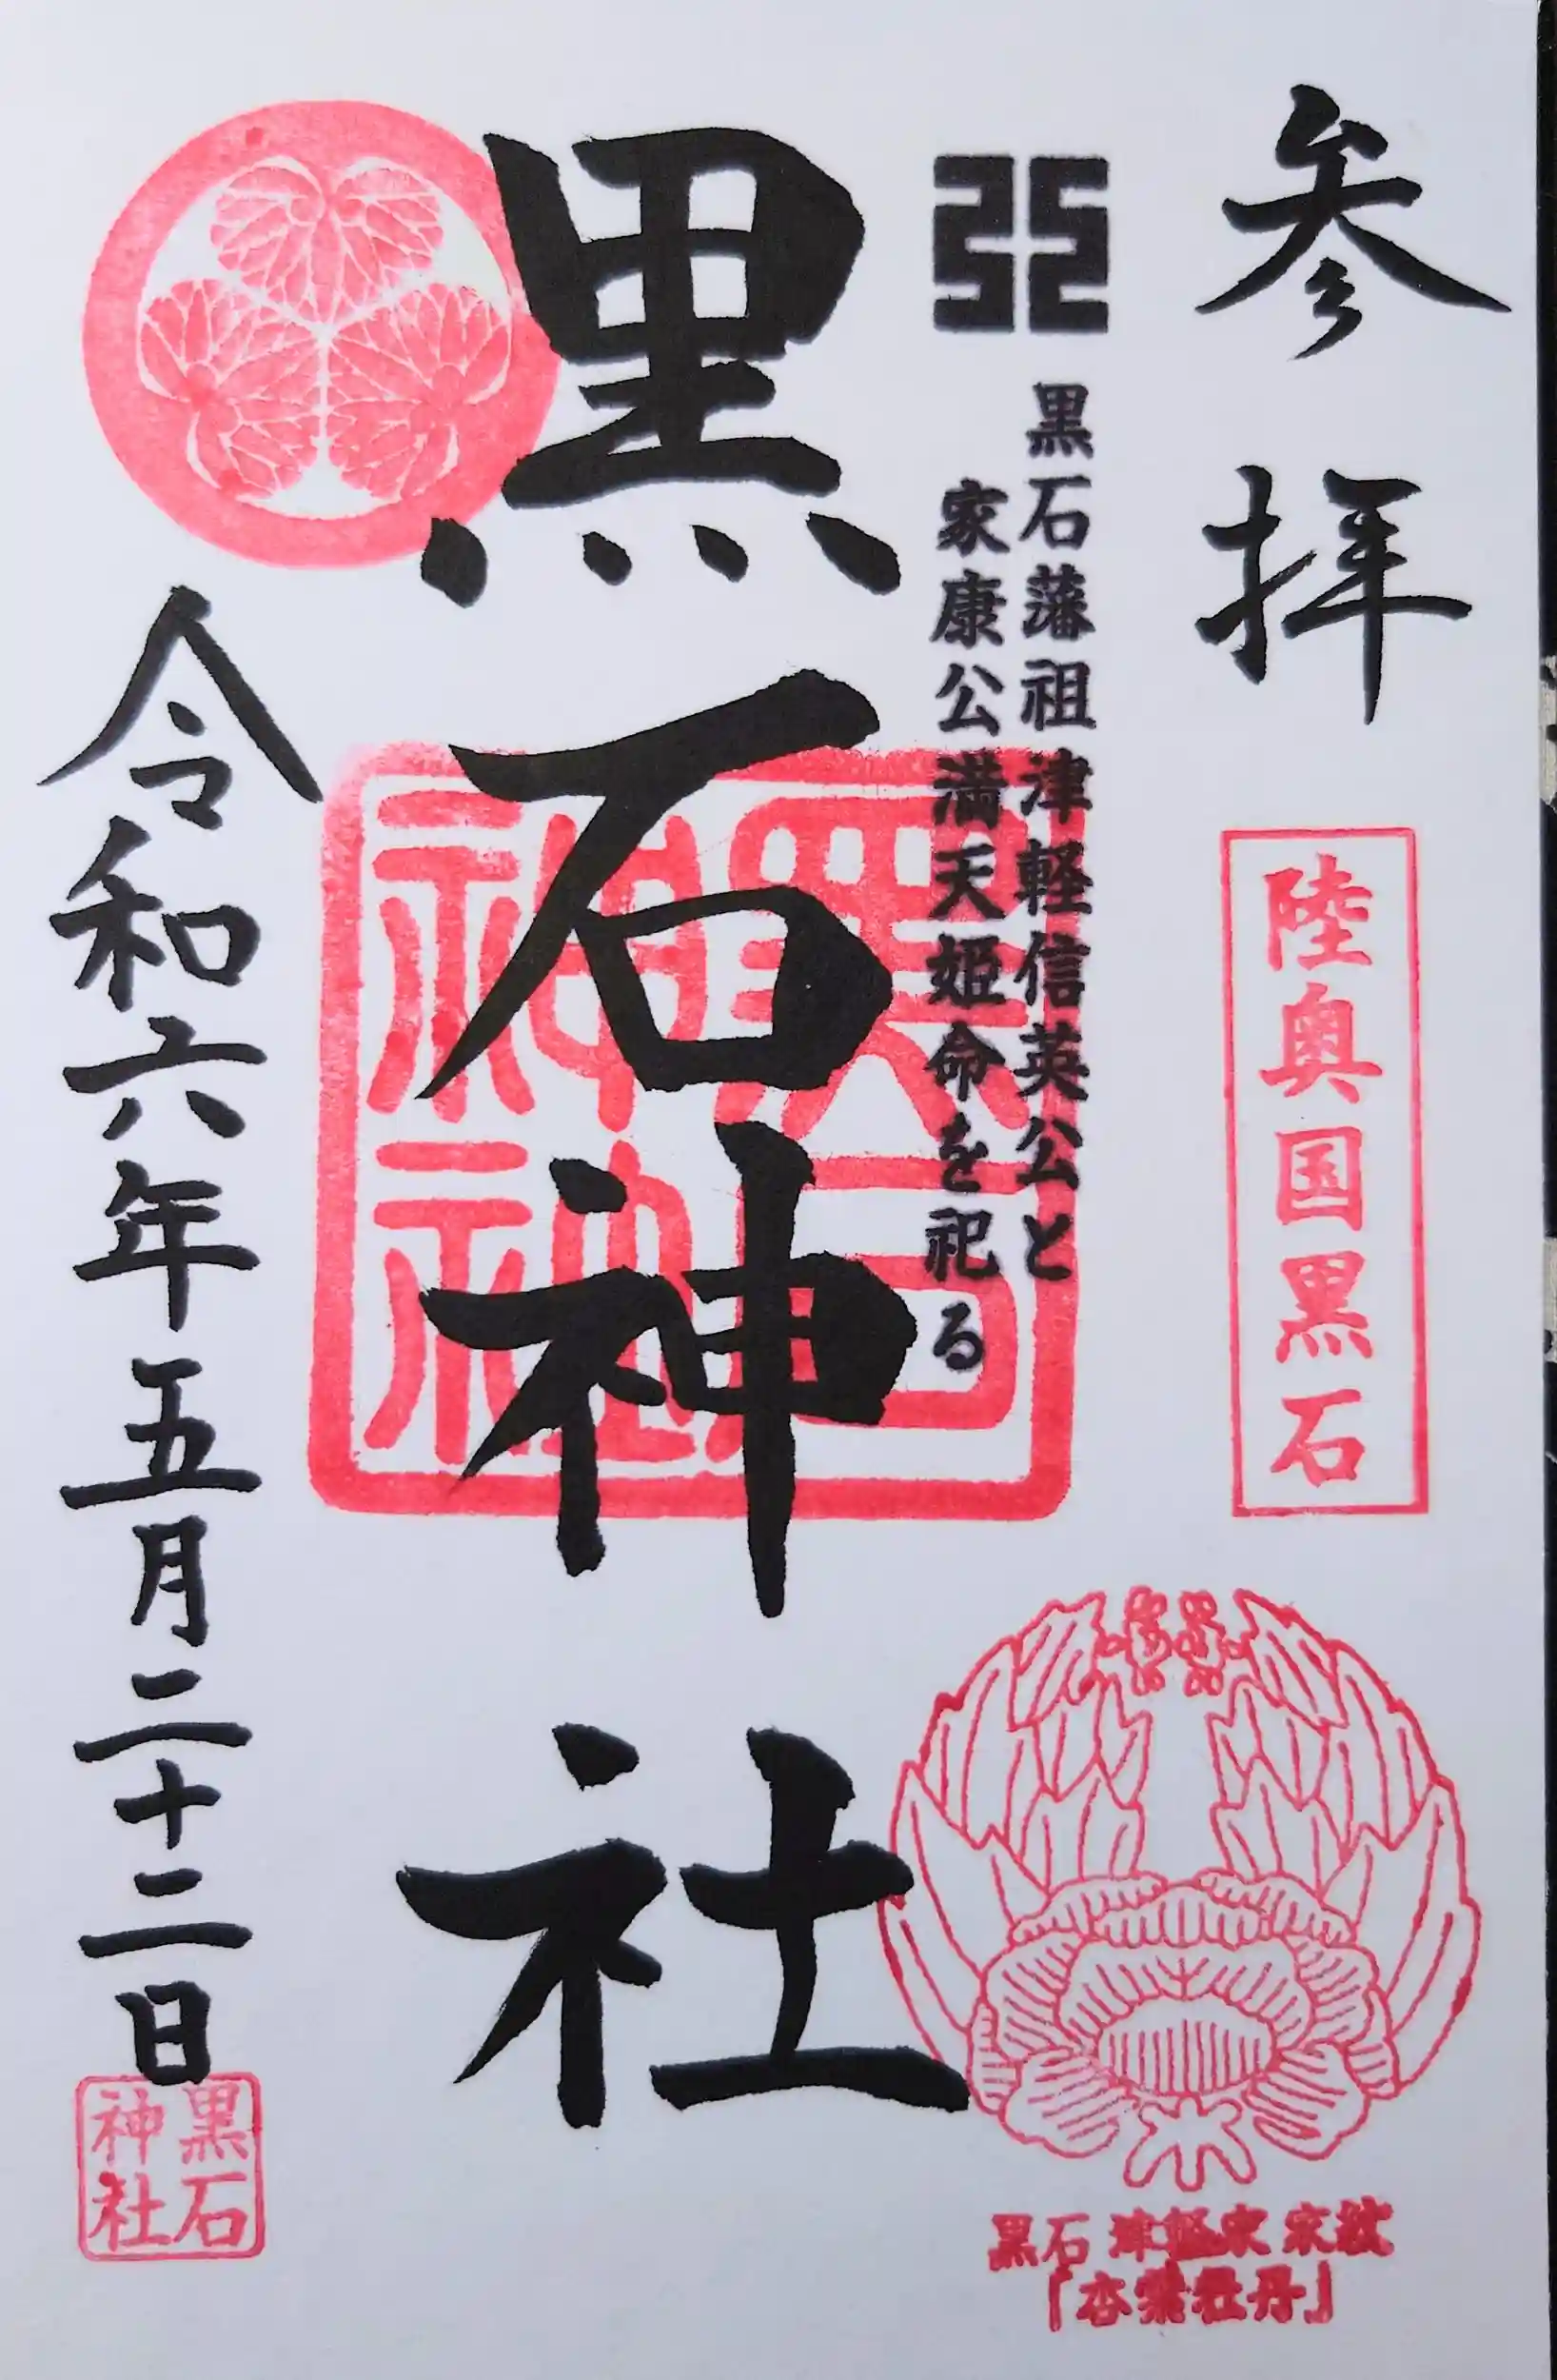 参拝
陸奥国黒石
黒石津軽家家紋
「杏葉牡丹」
黒石藩祖津軽信英公と
家康公満天姫命を祀る
黒石神社
黒石
神社
令和六年五月二十二日
黒石
神社